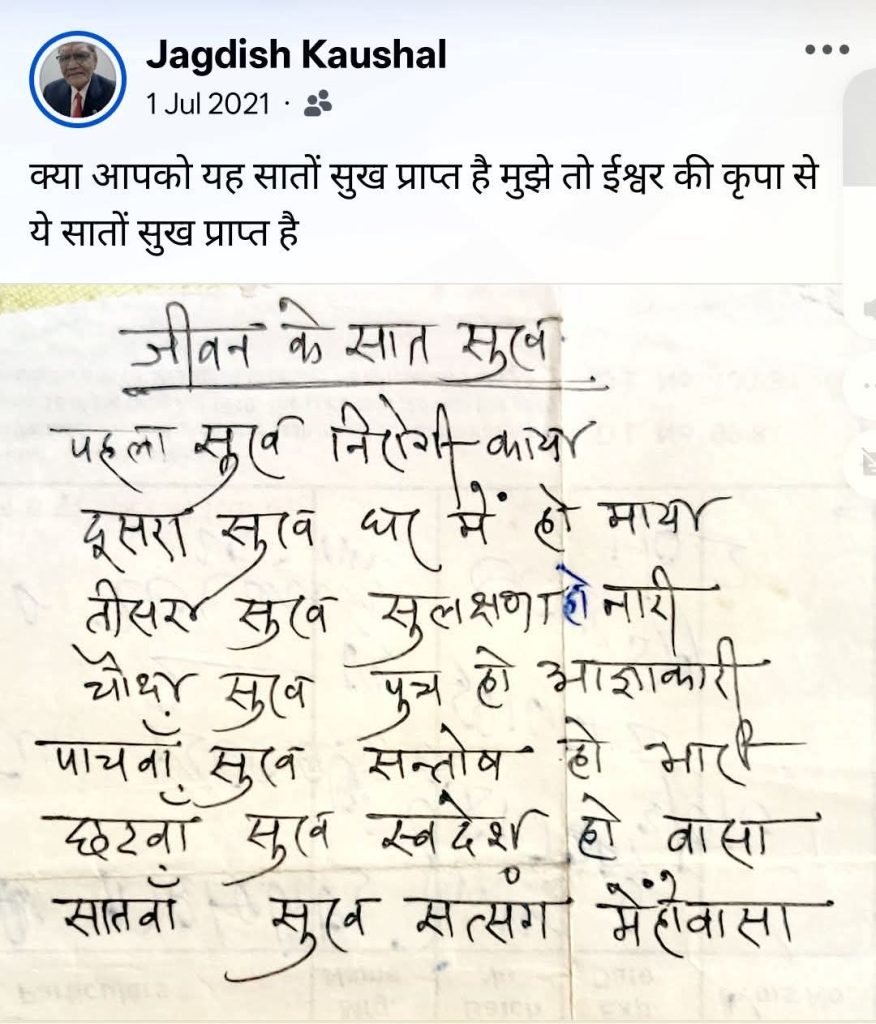 Jagdish Kaushal
1 Jul 2021 ·
क्या आपको यह सातों सुख प्राप्त है मुझे तो ईश्वर की कृपा से
ये सातों सुख प्राप्त है
जीवन के सात सुख
पहला सुख निरोगी काया
दूसरा सुख घर में हो माया
तीसरा सुख सुलक्षणा हो नारी
चौथा सुख पुत्र हो आज्ञाकारी
पाचवाँ सुख सन्तोष हो भारी
छटवाँ सुख स्वदेश हो वासा
सातवाँ सुख सत्संग में हो वासा